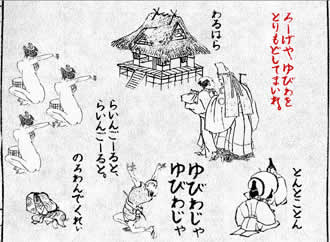 ろーげや ゆびわを
とりもどしてまいれ。
わるはら
らいんごーると、
らいんごーると。
のろわんでくれぃ
ゆびわじゃ
ゆびわじゃ
とんとことん